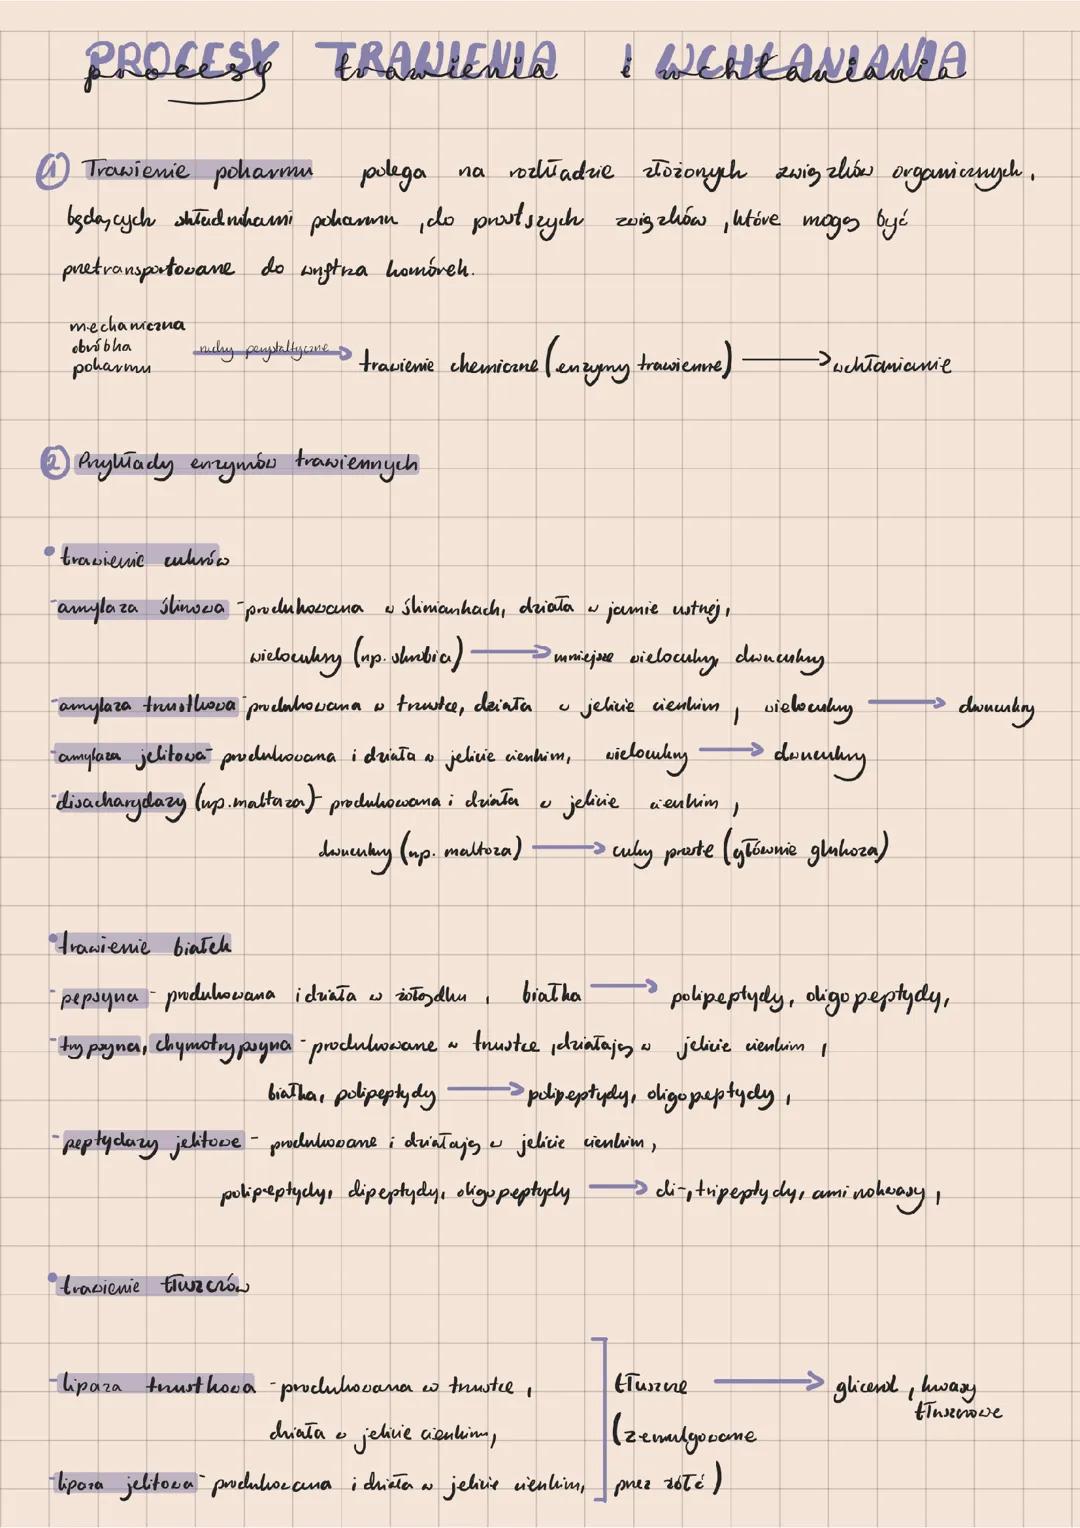 PROCESY TRAWIENIA i WCHŁANIANIA
procesy trawienia i wchłaniania
1 Trawienie pokarmu polega na rozkładzie złożonych związków organicznych,
będących składnikami pokarmu, do prostszych związków, które mogą być
przetransportowane do wnętrza komórek.
mechaniczna
obróbka
pokarmu
ruchy perystaltyczne → trawienie chemiczne (enzymy trawienne) → wchłanianie
2 Przykłady enzymów trawiennych
• trawienie cukrów
- amylaza ślinowa - produkowana w śliniankach, działa w jamie ustnej,
wielocukry (np. skrobia) → mniejsze wielocukry, dwucukry
- amylaza trzustkowa - produkowana w trzustce, działa w jelicie cienkim, wielocukry → dwucukry
- amylaza jelitowa - produkowana i działa w jelicie cienkim, wielocukry → dwucukry
- disacharydazy (np. maltaza) - produkowana i działa w jelicie cienkim,
dwucukry (np. maltoza) → cukry proste (głównie glukoza)
• trawienie białek
- pepsyna - produkowana i działa w żołądku, białka → polipeptydy, oligopeptydy,
- trypsyna, chymotrypsyna - produkowane w trzustce, działają w jelicie cienkim,
białka, polipeptydy → polipeptydy, oligopeptydy,
- peptydazy jelitowe - produkowane i działają w jelicie cienkim,
polipeptydy, dipeptydy, oligopeptydy → di-, tripeptydy, aminokwasy,
• trawienie tłuszczów
- lipaza trzustkowa - produkowana w trzustce,
działa w jelicie cienkim,
- lipaza jelitowa - produkowana i działa w jelicie cienkim,
tłuszcze → glicerol, kwasy tłuszczowe
(zemulgowane
przez żółć)